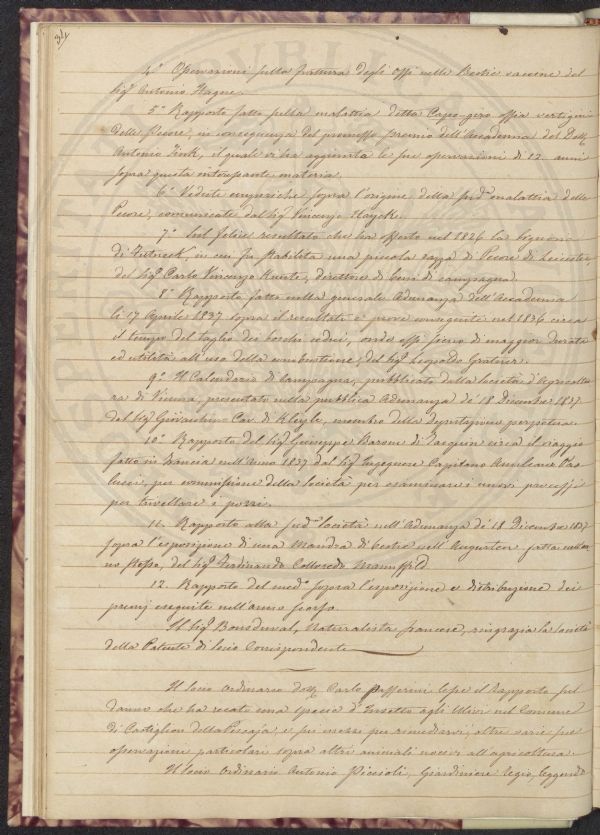 34
4.° Operazioni sulla frattura degli Ossi nelle Bestie vaccine del
Sig.e Antonio Hayne.
5.° Rapporto fatto sulla malattia detta Capo-giro ossia vertigini
delle Pecore, in conseguenza del promesso premio dell'Accademia dal Dott.
Antonio Zink, il quale vi ha aggiunto le sue operazioni di 12. anni
sopra questa interessante materia.
6.° Vedute empiriche sopra l'origine della sud.a malattia delle
Pecore, comunicate dal Sig.e Vincenzo Hayek.
7.° Sul felice resultato che ha offerto nel 1826 la Signoria
di in cui fu stabilita una piccola razza di Pecore di Leicester
del Sig.e Carlo Vincenzo direttore di beni di campagna.
8.° Rapporto fatto nella generale Adunanza dell'Accademia
li 17 Aprile 1837 sopra il resultato e prove conseguite nel 1836 circa
il tempo del taglio dei boschi cedui, onde essi sieno di maggior durata
ed utilità all'uso della combustione, del Sig.e Leopoldo Grabner.
9.° Il Calendario di Campagna, pubblicato dalla Società d'Agricoltu-
ra di Vienna, presentato nella pubblica Adunanza de' 18 Dicembre 1837
dal Sig.e Giovacchino Cav. di Kleyle, membro della Deputazione perpetua.
10.° Rapporto del Sig.e Giuseppe Barone di Jacquin circa il viaggio
fatto in Francia nell'Anno 1837 dal Sig.e Ingegnere Capitano
per commissione della Società per esaminare i nuovi processi
per trivellare i pozzi.
11. Rapporto alla sud.a Società nell'Adunanza de' 18 Dicembre 1837
sopra l'esposizione di una Mandra di bestie nell'Augarten fatta nell'an-
no stesso, del Sig.e Ferdinando Colloredo Mannsfeld
12. Rapporto del med.o sopra l'esposizione e distribuzione dei
premj eseguita nell'anno scorso.
Il Sig.e Boisduval, Naturalista francese, ringrazia la Società
della Patente di Socio Corrispondente
Il Socio Ordinario Dott. Carlo Passerini lesse il Rapporto sul
danno che ha recato una specie d'Insetto agli Ulivi nel Comune
di Castiglion della Pescaja, e sui mezzi per rimediarvi; altre varie sue
operazioni particolari sopra altri animali nocivi all'agricoltura.
Il Socio Ordinario Antonio Piccioli, Giardiniere Regio, leggendo